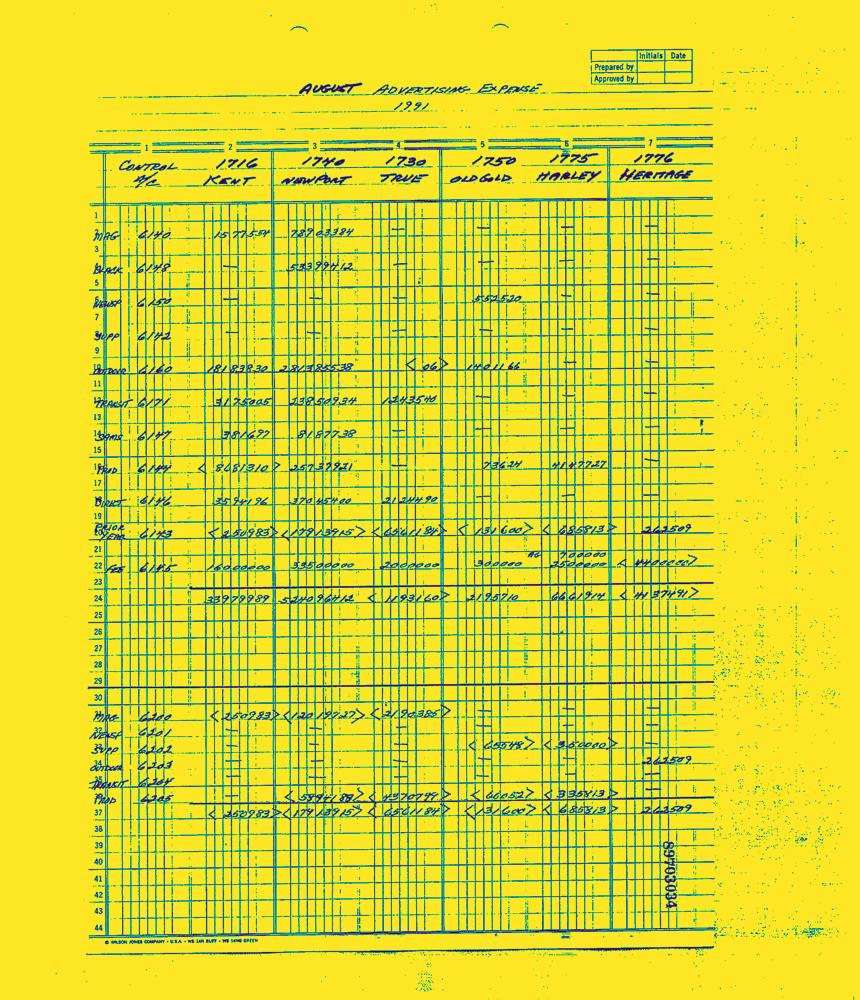 Initials Date
Prepared by
Approved by
AUGUST ADVERTISING EXPENSE
1991
1 2 3 4 5 6 7
CONTROL 1716 1740 1730 1750 1775 1776
A/C KENT NEWPORT TRUE OLD GOLD HARLEY HERITAGE
1
MAG 6140 1577554 78903384 — — — —
3
BLACK 6148 — 53399412 — — — —
5
NEWSP 6150 — — — 552520 — —
7
SUPP 6142 — — — — — —
9
OUTDOOR 6160 18183830 281385538 < 06> 1401166 — —
11
TRANSIT 6171 3175005 23850934 1243540 — — —
13
SAMS 6147 381697 8187738 — — — —
15
PROD 6144 < 8681310> 25737921 — 73624 4147727 —
17
DIRECT 6146 3594196 37045400 2124490 — — —
19
PRIOR
YEAR 6143 < 250983> <17913915> < 6561184> < 131600> < 685813> 262509
21 AG 700000
22 FEE 6145 16000000 33500000 2000000 300000 2500000 < 4400000>
23
24 33979989 524096412 < 1193160> 2195710 6661914 < 4137491>
25
26
27
28
29
30
MAG 6200 < 250983> <12019727> < 2190385> — — —
NEWSP 6201 — — — — — —
SUPP 6202 — — — < 65548> < 350000> —
OUTDOOR 6203 — — — — — 262509
TRANSIT 6204 — — — — — —
PROD 6205 — < 5894188> < 4370799> < 66052> < 335813> —
37 < 250983> <17913915> < 6561184> < 131600> < 685813> 262509
38
39
40
41
42
43
44
89703034
© WILSON JONES COMPANY • U.S.A.